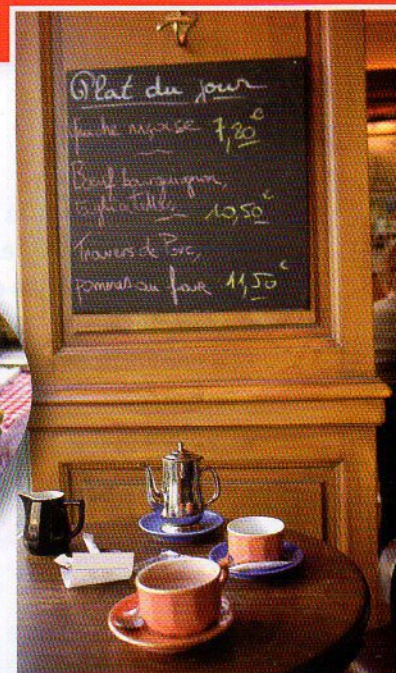 Plat du jour
niçoise 7,80€
Boeuf bourguignon,
tagliatelles, 10,50€
Travers de Porc,
pommes au four 11,50€